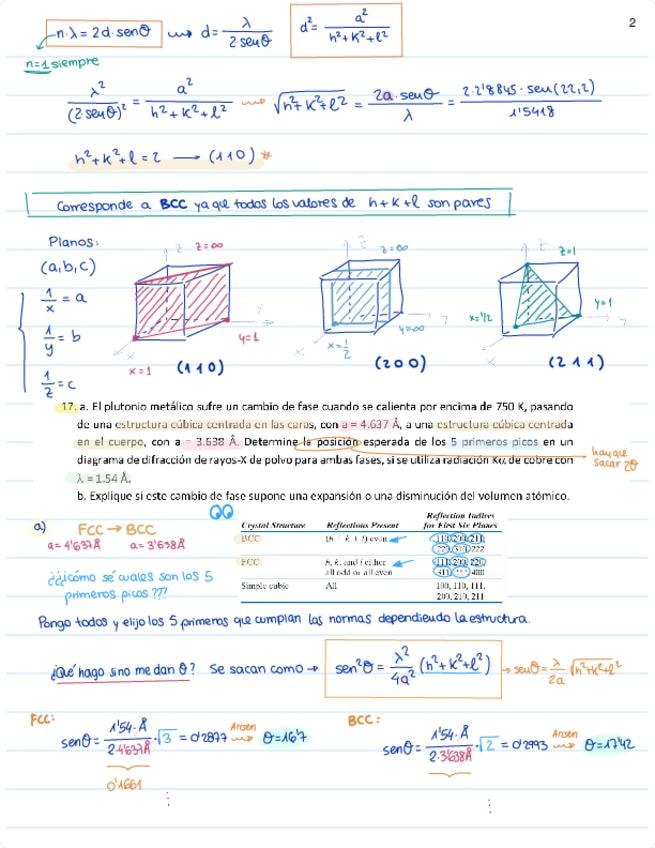 2
n·λ = 2d·senθ ⇝ d = λ / 2·senθ
d² = a² / h²+k²+l²
n=1 siempre
λ² / (2·senθ)² = a² / h²+k²+l² ⇝ √h²+k²+l² = 2a·senθ / λ = 2·2'8845·sen(22,2) / 1'5418
h²+k²+l = 2 → (110) *
Corresponde a BCC ya que todos los valores de h+k+l son pares
Planos:
(a,b,c)
1/x = a
1/y = b
1/z = c
z z=∞ y y=1 x x=1 (110)
z z=∞ y=∞ x x=1/2 (200)
z z=1 y=1 y x=1/2 x (211)
17. a. El plutonio metálico sufre un cambio de fase cuando se calienta por encima de 750 K, pasando
de una estructura cúbica centrada en las caras, con a = 4.637 Å, a una estructura cúbica centrada
en el cuerpo, con a = 3.638 Å. Determine la posición esperada de los 5 primeros picos en un
diagrama de difracción de rayos-X de polvo para ambas fases, si se utiliza radiación Kα de cobre con
λ = 1.54 Å.
hay que
sacar 2θ
b. Explique si este cambio de fase supone una expansión o una disminución del volumen atómico.
a) FCC → BCC
a=4'637Å a=3'638Å
¿¿¿cómo sé cuales son los 5
primeros picos ???
Crystal Structure Reflections Present Reflection Indices for First Six Planes
BCC (h + k + l) even 110, 200, 211,
220, 310, 222
FCC h, k, and l either 111, 200, 220,
all odd or all even 311, 222, 400
Simple cubic All 100, 110, 111,
200, 210, 211
Pongo todos y elijo los 5 primeros que cumplan las normas dependiendo la estructura.
¿Qué hago si no me dan θ? Se sacan como → sen²θ = λ² / 4a² (h²+k²+l²) → senθ = λ / 2a √h²+k²+l²
FCC:
senθ = 1'54·Å / 2·4'637Å ·√3 = 0'2877 Arcsen ⇝ θ=16'7
0'1661
⋮
BCC:
senθ = 1'54·Å / 2·3'638Å ·√2 = 0'2993 Arcsen ⇝ θ=17'42
⋮